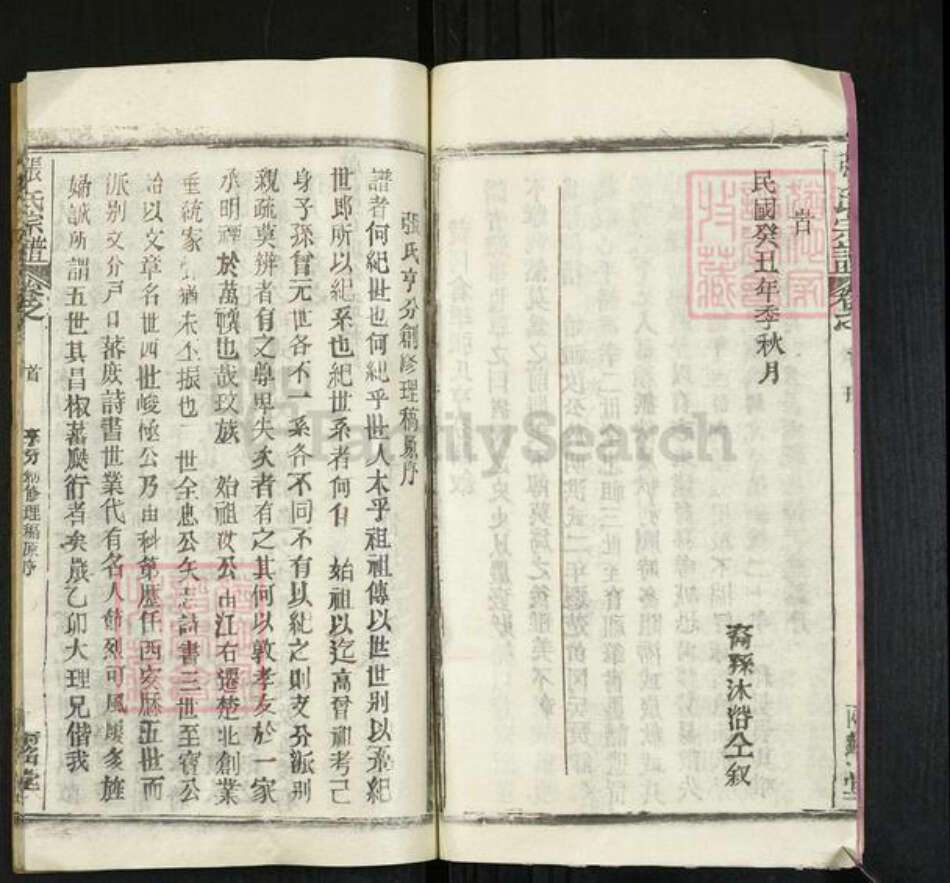 旹
民國癸丑年季秋月
裔孫沐浴仝叙
張氏亨分創修理稿原序
譜者何紀世也何紀乎世人本乎祖祖傳以世世別以系紀
世郎所以紀系也紀世系者何自 始祖以迄高曾祖考己
身子孫曾元世各不一系各不同不有以紀之則支分派別
親疏莫辨者有之尊卑失次者有之其何以敦孝友於一家
承明禋於萬禩也哉玟族 始祖汶公由江右遷楚北創業
垂統家 猶未丕振也 世全忠公矢志詩書三世至寶公
始以文章名世四世峻極公乃由科第歷任西安縣五世而
派別支分戶口蕃庶詩書世業代有名人節烈可風屢參旌
婦誠所謂五世其昌椒蕃瓞衍者矣歲乙卯大理兄偕我
張氏宗譜
卷之
首
亨分創修理稿原序
堂